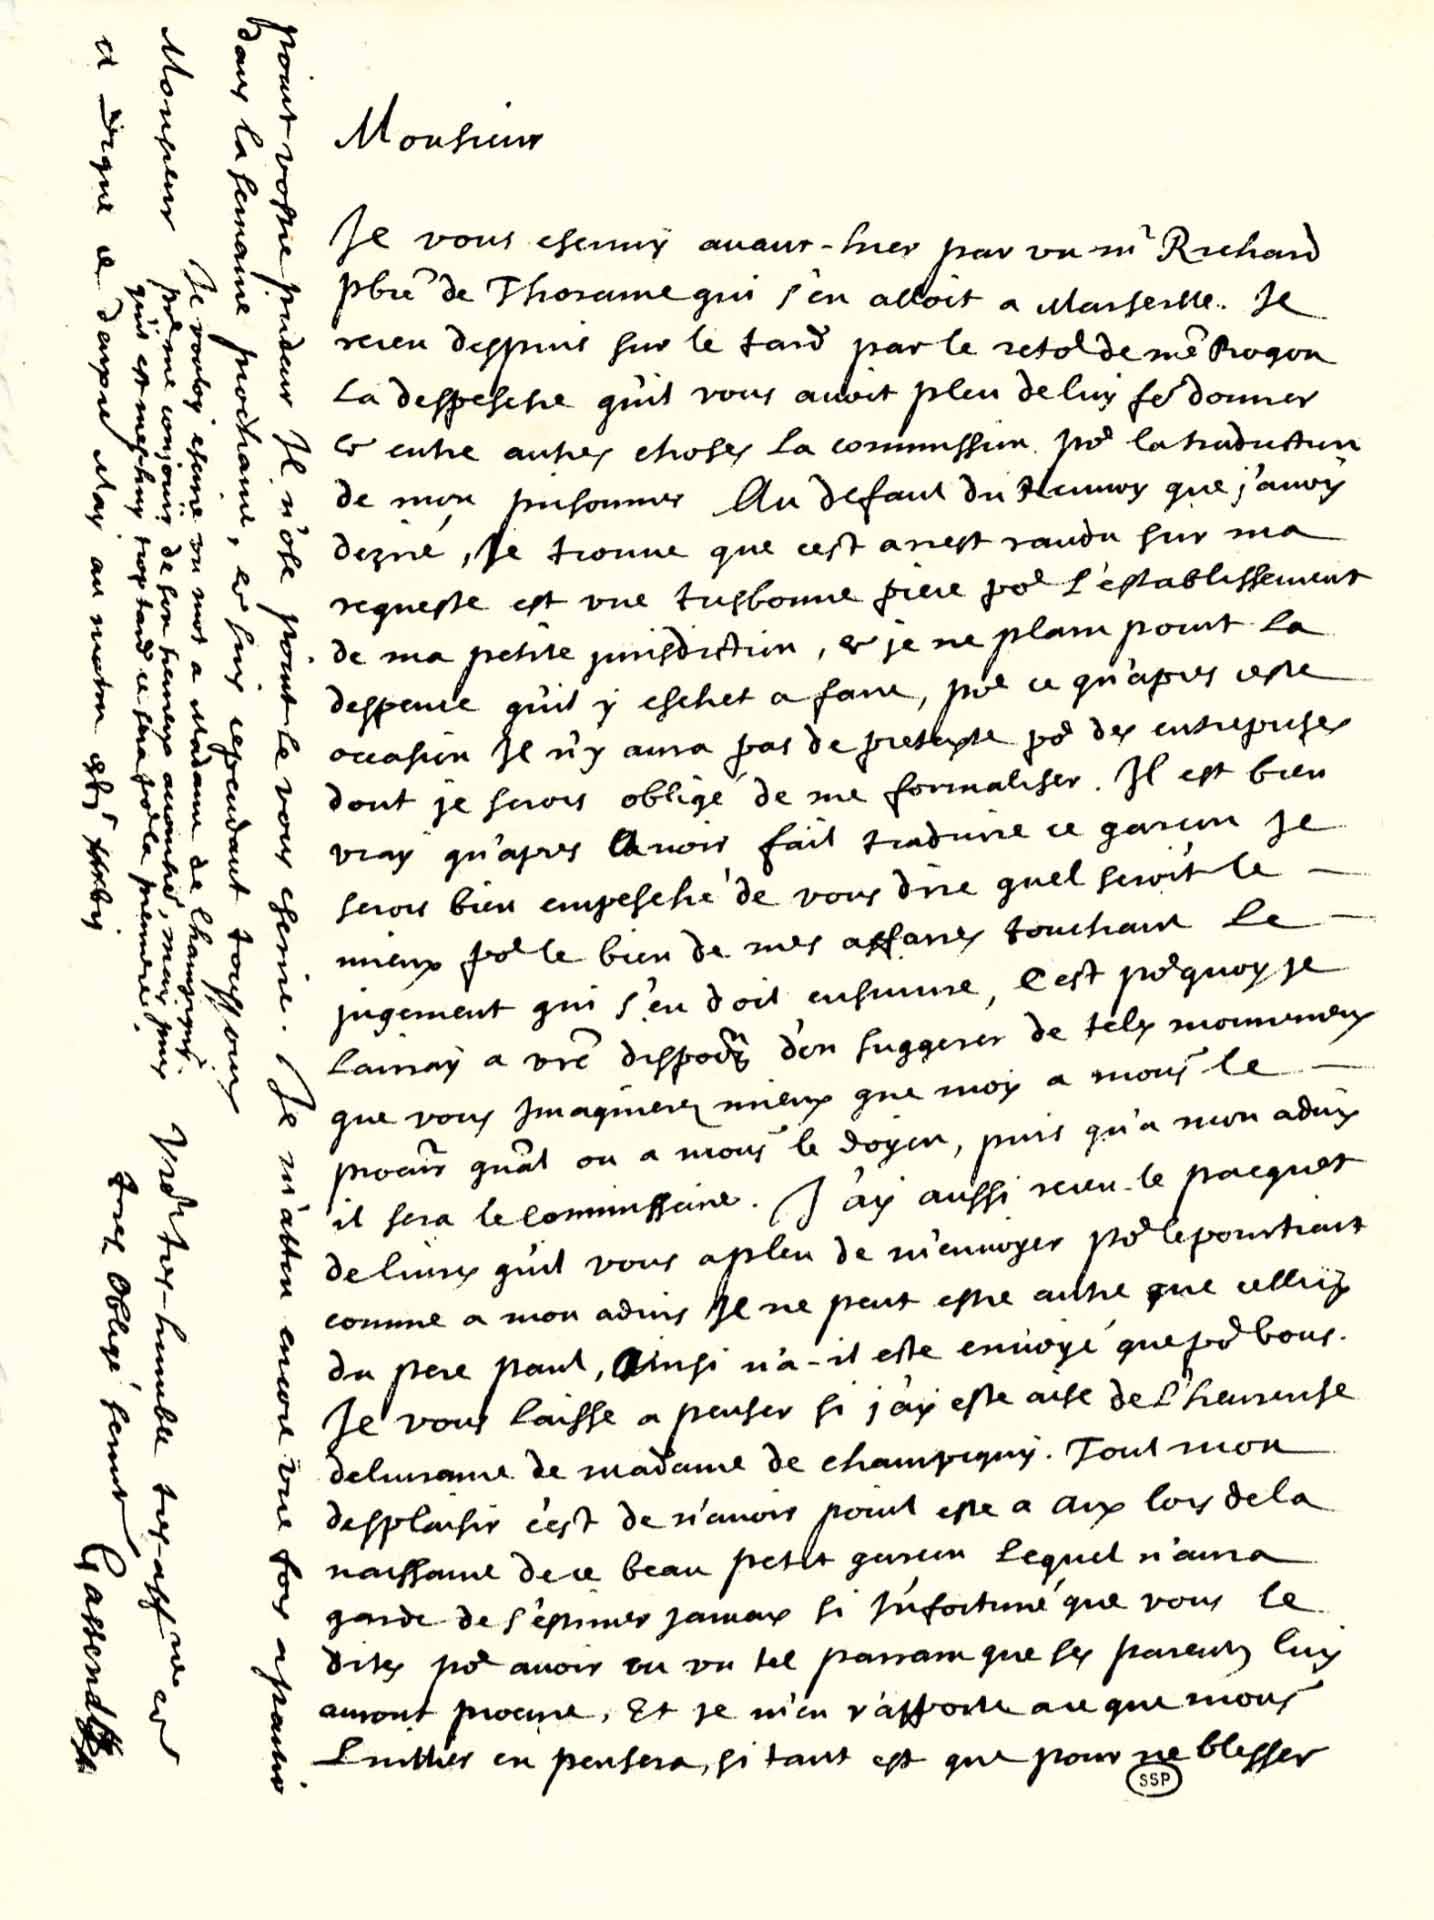 Monsieur
Je vous escrivy avant-hier par un mr Richard
pbre de Thorame qui s'en alloit a Marseille. Je
receu despuis sur le tard par le retor de me Rogon
la despesche qu'il vous avoit pleu de luy fe donner
& entre autres choses la commission por la traduction
de mon prisonnier Au defaut du renvoy que j'avoy
dezire, Je trouve que cest arrest randu sur ma
requeste est une tresbonne piece por l'establissement
de ma petite jurisdiction, & je ne plain point la
despence qu'il y eschet a faire, por ce qu'apres ceste
occasion Il n'y aura pas de pretexte por des entreprises
dont je serois obligé de me formaliser. Il est bien
vray qu'apres avoir fait traduire ce garcon Je
serois bien empesché de vous dire quel seroit le
mieux por le bien de mes affaires touchant le
jugement qui s'en doit ensuivre, C'est porquoy je
lairray a vre dispoon d'en suggerer de telz mouvemens
que vous Imaginerez mieux que moy a monsr le
procur gnal ou a monsr le doyen, puis qu'a mon advis
il sera le Commissaire. J'ay aussi receu le pacquet
de livres qu'il vous a pleu de m'envoyer por le pourtrait
comme a mon advis Il ne peut estre autre que celluy
du pere paul, Ainsi n'a-il este envoyé que por vous.
Je vous laisse a penser si j'ay este aise de l'heureuse
delivrance de madame de Champigny. Tout mon
desplaisir c'est de n'avoir point este a Aix lors de la
naissance de ce beau petit garcon lequel n'aura
garde de s'estimer jamais si Infortuné que vous le
dites por avoir eu un tel parrain que ses parents luy
auront procuré, Et je m'en rapporte a ce que monsr
Luillier en pensera, si tant est que pour ne blesser
SSP
point vostre pudeur Il n'ose point le vous escrire. Je m'atten encore une fois a partir
dans la semaine prochaine, & suis cependant tousjours
Je voulois escrire un mot a Madame de Champigny
por me conjouir de son heureux accouche, mais puis
qu'il est mes-huy trop tard ce sera por la premiere.
Monsieur
Vre tres-humble tres-affne &
tres oblige servitr
Gassend
a Digne ce dernier May au matin